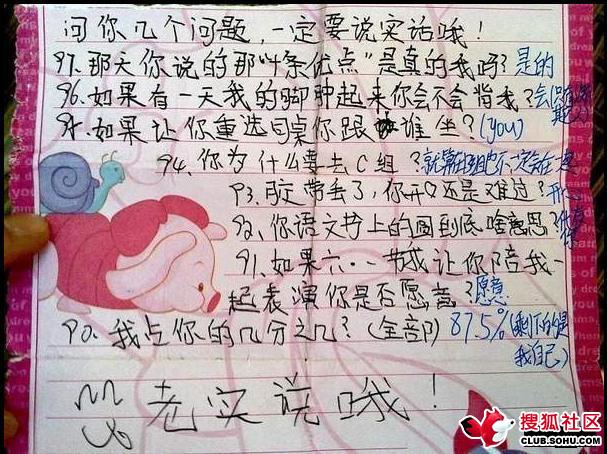 问你几个问题,一定要说实话哦!
97.那天你说的那"4条优点"是真的我吗?是的
96.如果有一天我的脚肿起来你会不会背我?会
95.如果让你重选同桌你跟谁坐?(you)
94.你为什么要去C组?就算在C组也不一定在一起
93.胶带丢了,你开心还是难过?开心
92.你语文书上的圈到底啥意思?代表你
91.如果六·一节我让你陪我一
起表演你是否愿意?愿意
90.我占你的几分之几?(全部)87.5%(剩下的是
我自己)
老实说哦!
搜狐社区
CLUB.SOHU.COM